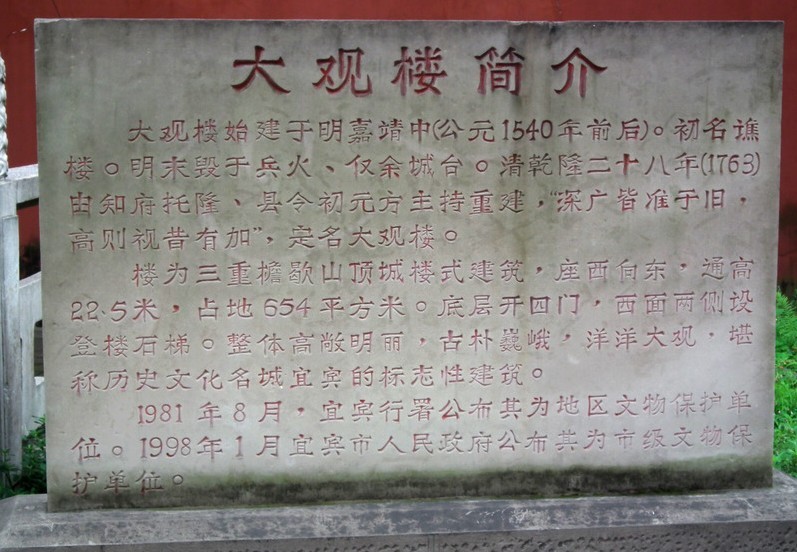 大观楼简介
大观楼始建于明嘉靖中(公元1540年前后)。初名谯
楼。明末毁于兵火、仅余城台。清乾隆二十八年(1763)
由知府托隆、县令初元方主持重建，“深广皆准于旧，
高则视昔有加”，定名大观楼。
楼为三重檐歇山顶城楼式建筑，座西向东，通高
22.5米，占地654平方米。底层开四门，西面两侧设
登楼石梯。整体高敞明丽，古朴巍峨，洋洋大观，堪
称历史文化名城宜宾的标志性建筑。
1981年8月，宜宾行署公布其为地区文物保护单
位。1998年1月宜宾市人民政府公布其为市级文物保
护单位。